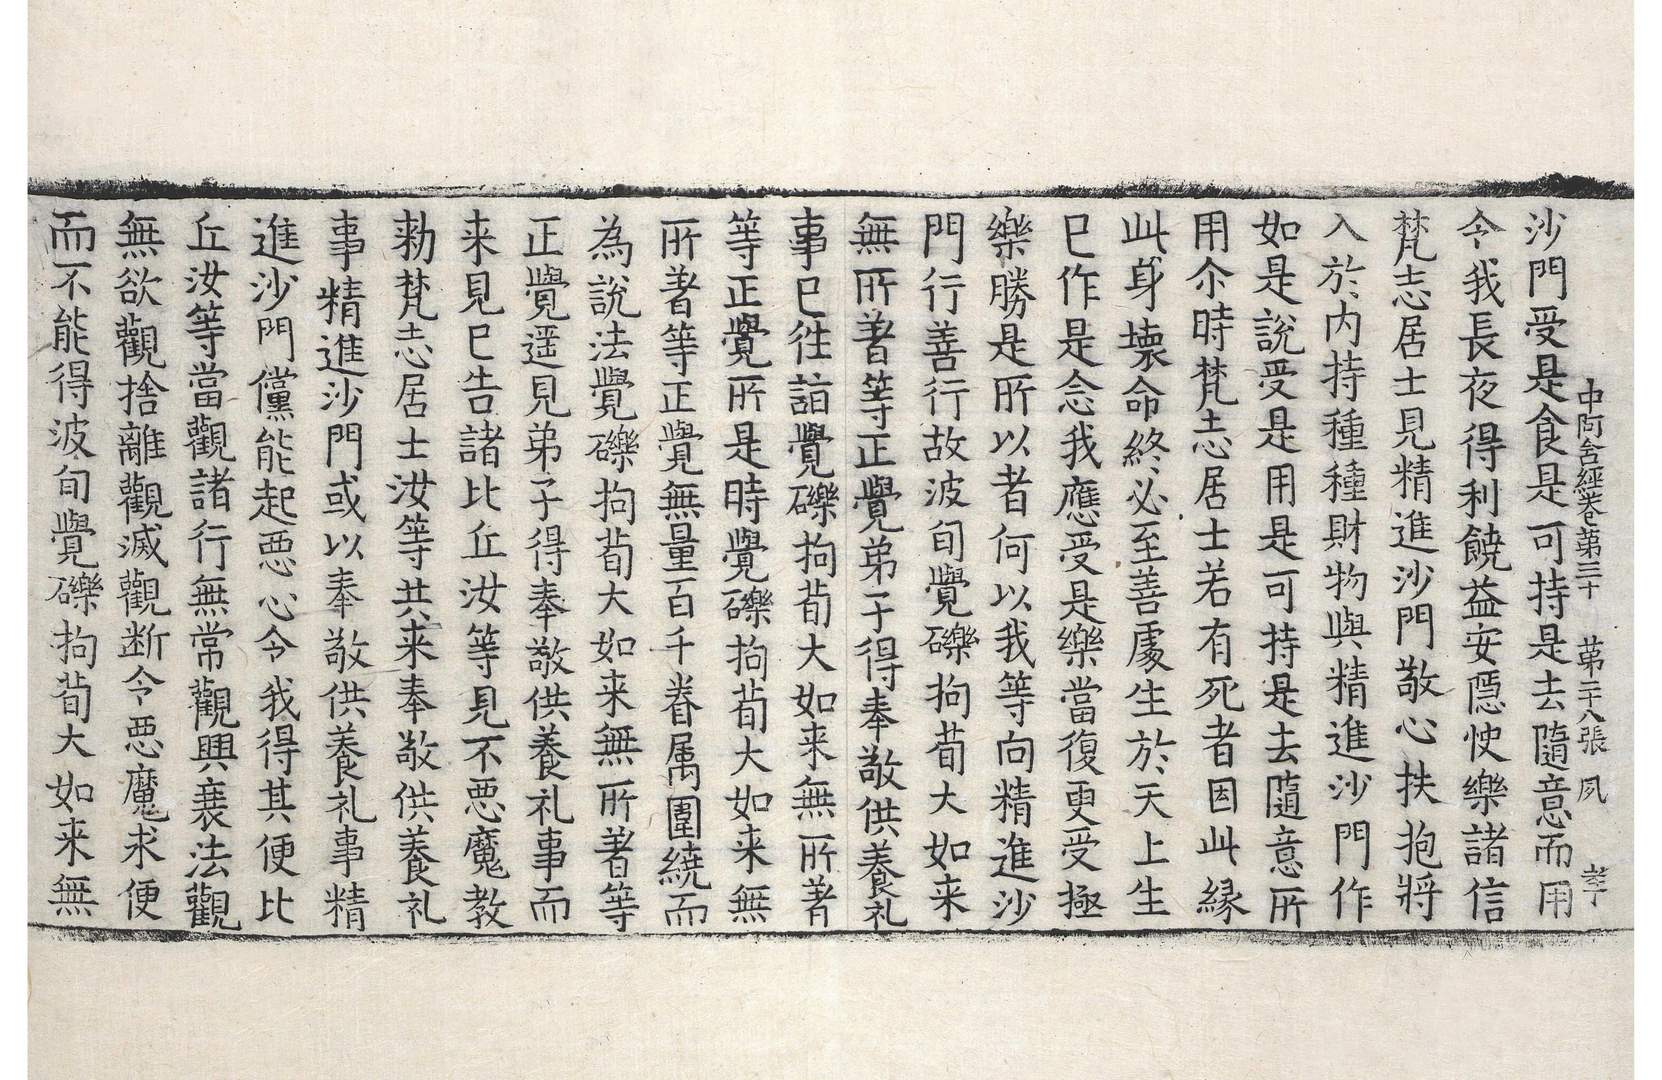 中阿含經卷第三十 第二十八張 夙 孝
沙門受是食是可持是去隨意而用
令我長夜得利饒益安隱快樂諸信
梵志居士見精進沙門敬心扶抱將
入於內持種種財物與精進沙門作
如是說受是用是可持是去隨意所
用尒時梵志居士若有死者因此縁
此身壞命終必至善處生於天上生
已作是念我應受是樂當復更受極
樂勝是所以者何以我等向精進沙
門行善行故波旬覺礫拘荀大如来
無所著等正覺弟子得奉敬供養礼
事已往詣覺礫拘荀大如来無所著
等正覺所是時覺礫拘荀大如来無
所著等正覺無量百千眷属圍繞而
為說法覺礫拘荀大如来無所著等
正覺遥見弟子得奉敬供養礼事而
来見已告諸比丘汝等見不悪魔教
勑梵志居士汝等共来奉敬供養礼
事精進沙門或以奉敬供養礼事精
進沙門儻能起悪心令我得其便比
丘汝等當觀諸行無常觀興衰法觀
無欲觀捨離觀滅觀断令悪魔求便
而不能得波旬覺礫拘荀大如来無